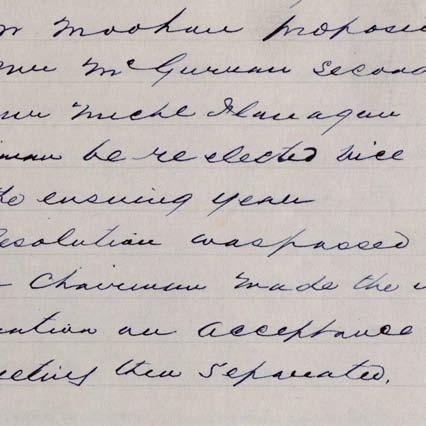 Mr Moohan propose
Mr McGurran Second
Mr Michl Flanagan
man be re elected vice
the ensuing year
Resolution was passed
Chairman made the
ration on acceptance
eeting then Separated.